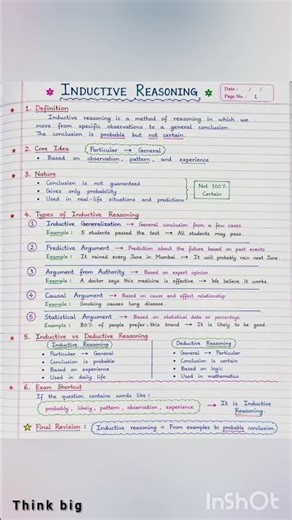 INDUCTIVE REASONING
Date : / /
Page No. : 1
1. Definition
Inductive reasoning is a method of reasoning in which we
move from specific observations to a general conclusion.
The conclusion is probable but not certain.
2. Core Idea
Particular → General
• Based on observation, pattern, and experience
3. Nature
• Conclusion is not guaranteed
• Gives only probability
• Used in real-life situations and predictions
Not 100%
Certain
4. Types of Inductive Reasoning
1 Inductive Generalization → General conclusion from a few cases
Example : 5 students passed the test → All students may pass.
2 Predictive Argument → Prediction about the future based on past events
Example : It rained every June in Mumbai → It will probably rain next June.
3 Argument from Authority → Based on expert opinion
Example : A doctor says this medicine is effective → We believe it works.
4 Causal Argument → Based on cause and effect relationship
Example : Smoking causes lung disease.
5 Statistical Argument → Based on statistical data or percentage
Example : 80% of people prefer this brand → It is likely to be good.
5. Inductive vs Deductive Reasoning
Inductive Reasoning
• Particular → General
• Conclusion is probable
• Based on experience
• Used in daily life
Deductive Reasoning
• General → Particular
• Conclusion is certain
• Based on logic
• Used in mathematics
6. Exam Shortcut
If the question contains words like :
probably, likely, pattern, observation, experience → It is Inductive
Reasoning.
Final Revision : Inductive reasoning = From examples to probable conclusion
Think big
InShOt